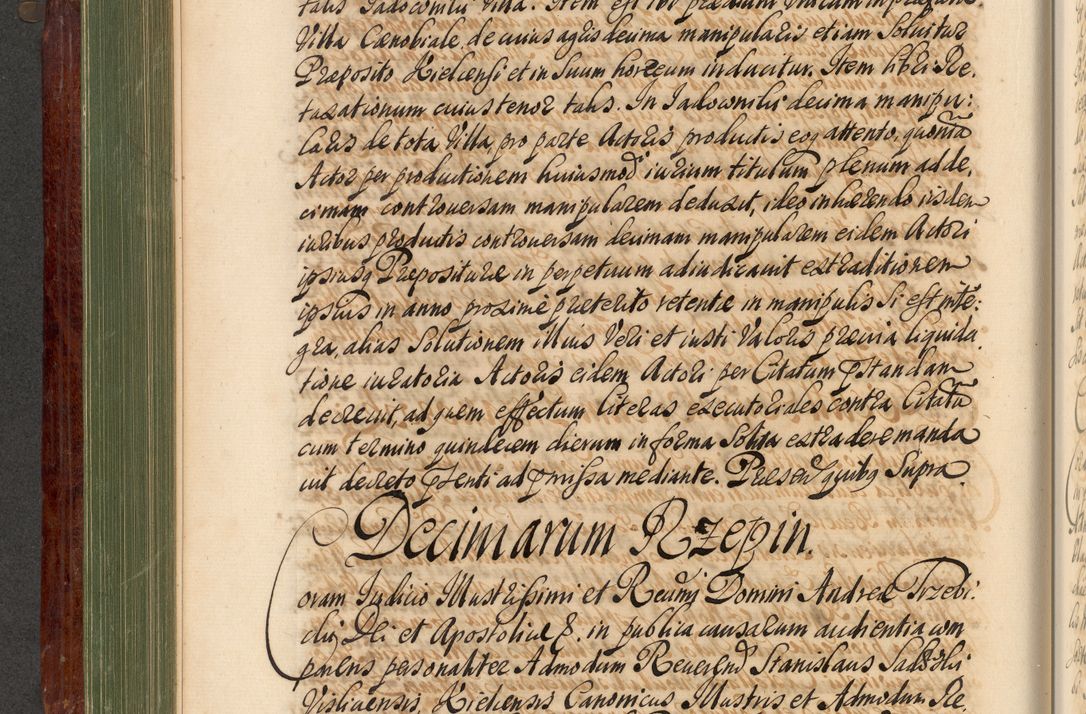 talis Jadocomilij Villa. Item est ibi prædium Unicum in præfata
Villa Cænobiale, de cuius agris decima manipularis etiam Solvitur
Præposito Kielcensi et in Suum horreum inducitur. Item libri Re,
taxationum cuius tenor talis. In Jadowniki decima manipu:
laris de tota Villa, pro parte Actoris productis eoq attento, quonia
Actor per productionem huiusmod iurium titulum plenum ad de,
cimam controversam manipularem deduxit, ideo inhærendo iisdem
iuribus productis controversam decimam manipularem eidem Actori
ipsiusq Præposituræ in perpetuum adiudicavit extraditionem
ipsius in anno proxime præterito retentæ in manipulis si est inte:
gra, alias Solutionem illius Veri et iusti Valoris prævia liquida
tione iuratoria Actoris eidem Actori per Citatum pstandam
decrevit, ad quem effectum literas executoriales contra Citatu
cum termino quindecem dierum in forma Solita extradere manda
vit decreto psenti ad pmissa mediante. Præsen quibq Supra
Decimarum Rzepin.
Coram Judicio Illustrissimi et Reudmi Domini Andreæ Trzebi:
cki Dei et Apostolicæ S. in publica causarum audientia com
parens personaliter Admodum Reverend Stanislaus
Visliciensis, Kielcensis Canonicus Illustris et Admodum Re,